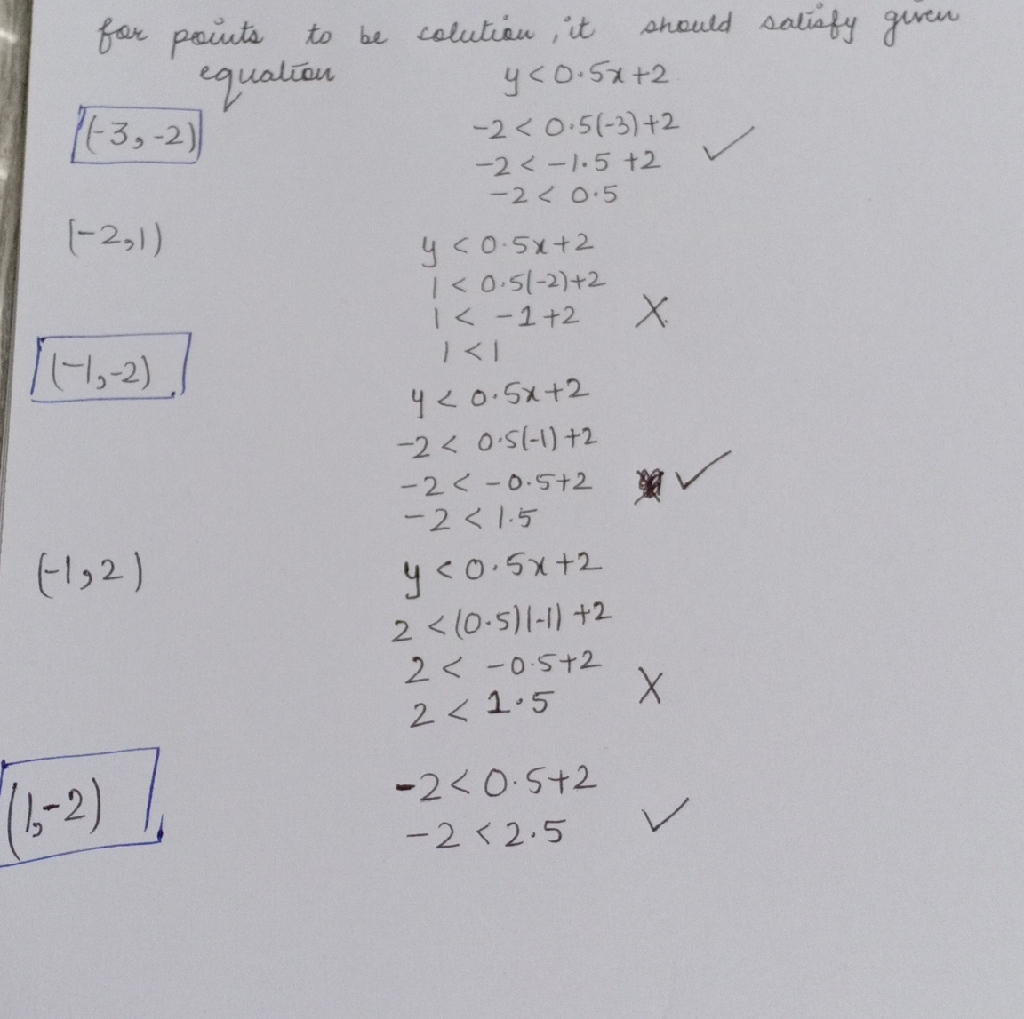 for points to be colution, it should satisfy given
equation
y < 0.5x + 2
(-3, -2)
-2 < 0.5(-3) + 2
-2 < -1.5 + 2 ✓
-2 < 0.5
(-2, 1)
y < 0.5x + 2
1 < 0.5(-2) + 2
1 < -1 + 2 X
1 < 1
(-1, -2)
y < 0.5x + 2
-2 < 0.5(-1) + 2
-2 < -0.5 + 2 ✓
-2 < 1.5
(-1, 2)
y < 0.5x + 2
2 < (0.5)(-1) + 2
2 < -0.5 + 2
2 < 1.5 X
(1, -2)
-2 < 0.5 + 2
-2 < 2.5 ✓